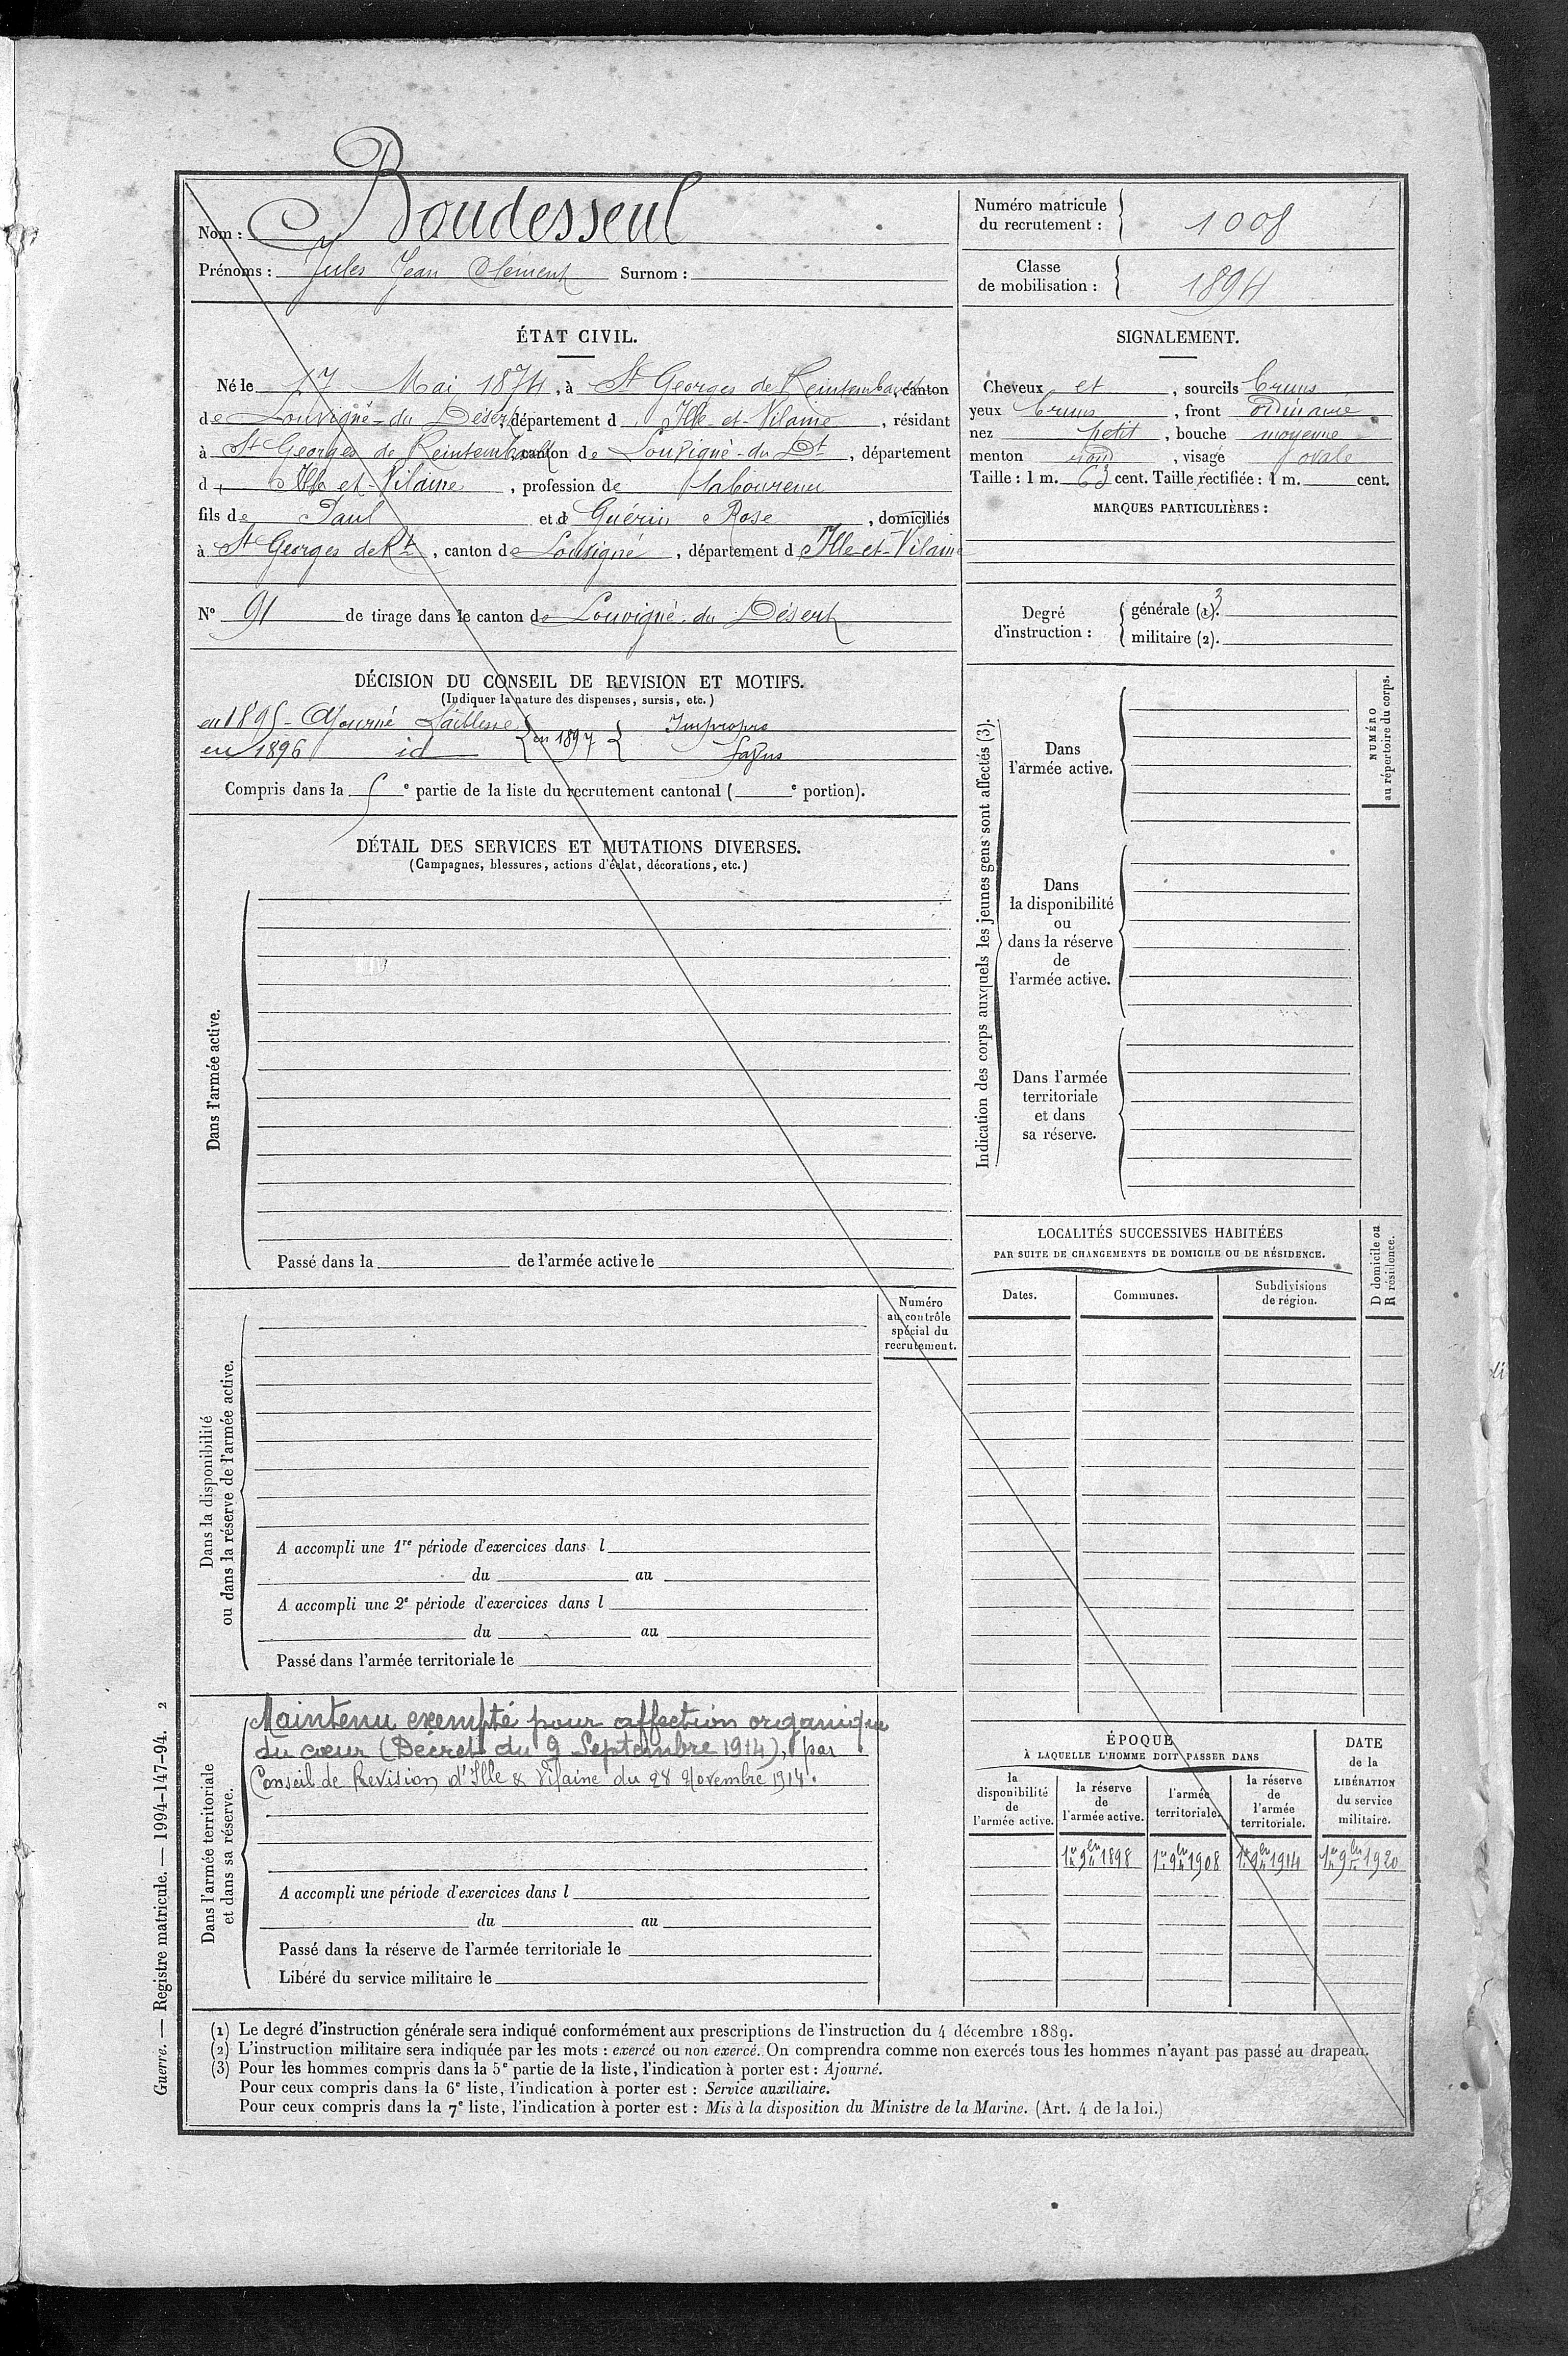 Nom : Boudesseul
Prénoms : Jules Jean Clément Surnom :
Numéro matricule
du recrutement : 1008
Classe
de mobilisation : 1894
ÉTAT CIVIL.
Né le 17 Mai 1874, à St Georges de Reintembault, canton
de Louvigné-du Désert, département d Ille et-Vilaine, résidant
à St Georges de Reintembault, canton de Louvigné-du Dt, département
d Ille et-Vilaine, profession de laboureur
fils de Paul et d Guérin Rose, domiciliés
à St Georges de Rt, canton de Louvigné, département d Ille-et-Vilaine
N° 91 de tirage dans le canton de Louvigné du Désert
SIGNALEMENT.
Cheveux et, sourcils bruns
yeux bruns, front ordinaire
nez petit, bouche moyenne
menton rond, visage ovale
Taille : 1 m. 63 cent. Taille rectifiée : 1 m. cent.
MARQUES PARTICULIÈRES :
Degré
d'instruction :
générale (1). 3
militaire (2).
DÉCISION DU CONSEIL DE REVISION ET MOTIFS.
(Indiquer la nature des dispenses, sursis, etc.)
en 1895 - Ajourné faiblesse
en 1896 id
en 1897
Impropre
Compris dans la 5e partie de la liste du recrutement cantonal ( e portion).
DÉTAIL DES SERVICES ET MUTATIONS DIVERSES.
(Campagnes, blessures, actions d'éclat, décorations, etc.)
Dans l'armée active.
Passé dans la de l'armée active le
Indication des corps auxquels les jeunes gens sont affectés (3).
Dans
l'armée active.
Dans
la disponibilité
ou
dans la réserve
de
l'armée active.
Dans l'armée
territoriale
et dans
sa réserve.
NUMÉRO
au répertoire du corps.
LOCALITÉS SUCCESSIVES HABITÉES
PAR SUITE DE CHANGEMENTS DE DOMICILE OU DE RÉSIDENCE.
Dates.
Communes.
Subdivisions
de région.
D domicile ou
R résidence.
Numéro
au contrôle
spécial du
recrutement.
Dans la disponibilité
ou dans la réserve de l'armée active.
A accompli une 1re période d'exercices dans l
du au
A accompli une 2e période d'exercices dans l
du au
Passé dans l'armée territoriale le
Dans l'armée territoriale
et dans sa réserve.
Maintenu exempté pour affection organique
du cœur (Décret du 9 Septembre 1914), par
Conseil de Revision d'Ille & Vilaine du 28 Novembre 1914.
A accompli une période d'exercices dans l
du au
Passé dans la réserve de l'armée territoriale le
Libéré du service militaire le
ÉPOQUE
À LAQUELLE L'HOMME DOIT PASSER DANS
la
disponibilité
de
l'armée active.
la réserve
de
l'armée active.
l'armée
territoriale.
la réserve
de
l'armée
territoriale.
DATE
de la
LIBÉRATION
du service
militaire.
1er 9bre 1898
1er 9bre 1908
1er 9bre 1914
1er 9bre 1920
(1) Le degré d'instruction générale sera indiqué conformément aux prescriptions de l'instruction du 4 décembre 1889.
(2) L'instruction militaire sera indiquée par les mots : exercé ou non exercé. On comprendra comme non exercés tous les hommes n'ayant pas passé au drapeau.
(3) Pour les hommes compris dans la 5e partie de la liste, l'indication à porter est : Ajourné.
Pour ceux compris dans la 6e liste, l'indication à porter est : Service auxiliaire.
Pour ceux compris dans la 7e liste, l'indication à porter est : Mis à la disposition du Ministre de la Marine. (Art. 4 de la loi.)
Guerre. — Registre matricule. — 1994-147-94. 2